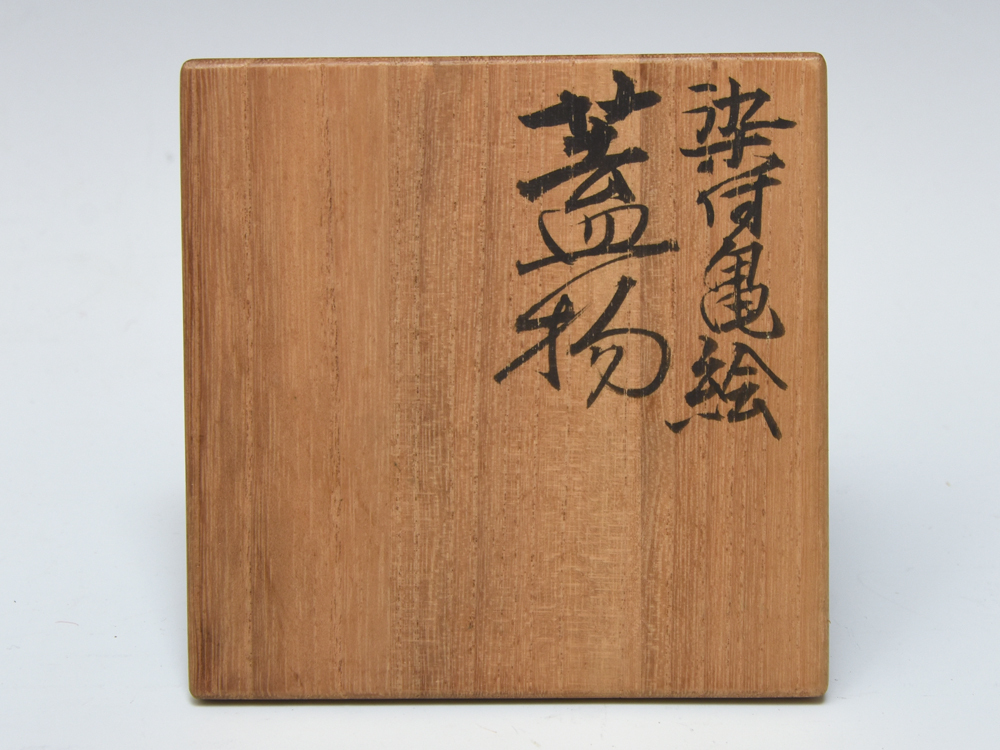 染付亀絵
蓋物